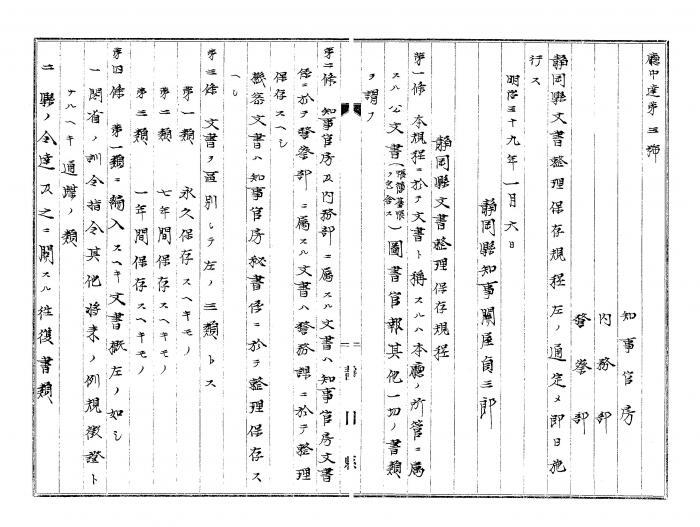 庁中達第三号
知事官房
内務部
警察部
静岡県文書整理保存規程左ノ通定メ即日施
行ス
明治三十九年一月六日
静岡県知事関屋貞三郎
静岡県文書整理保存規程
第一条 本規程ニ於テ文書ト称スルハ本庁ノ所管ニ属
スル公文書(帳簿ヲ含ム)図書官報其他一切ノ書類
ヲ謂フ
静岡県
第二条 知事官房及内務部ニ属スル文書ハ知事官房文書
係ニ於テ警察部ニ属スル文書ハ警務課ニ於テ整理
保存スヘシ
機密文書ハ知事官房秘書係ニ於テ整理保存ス
ヘシ
第三条 文書ヲ区別シテ左ノ三類トス
第一類 永久保存スヘキモノ
第二類 七年間保存スヘキモノ
第三類 一年間保存スヘキモノ
第四条 第一類ニ編入スヘキ文書概左ノ如シ
一 閣省ノ訓令指令其他将来ノ例規徴証ト
ナルヘキ通牒ノ類
二 県ノ令達及之ニ関スル往復書類